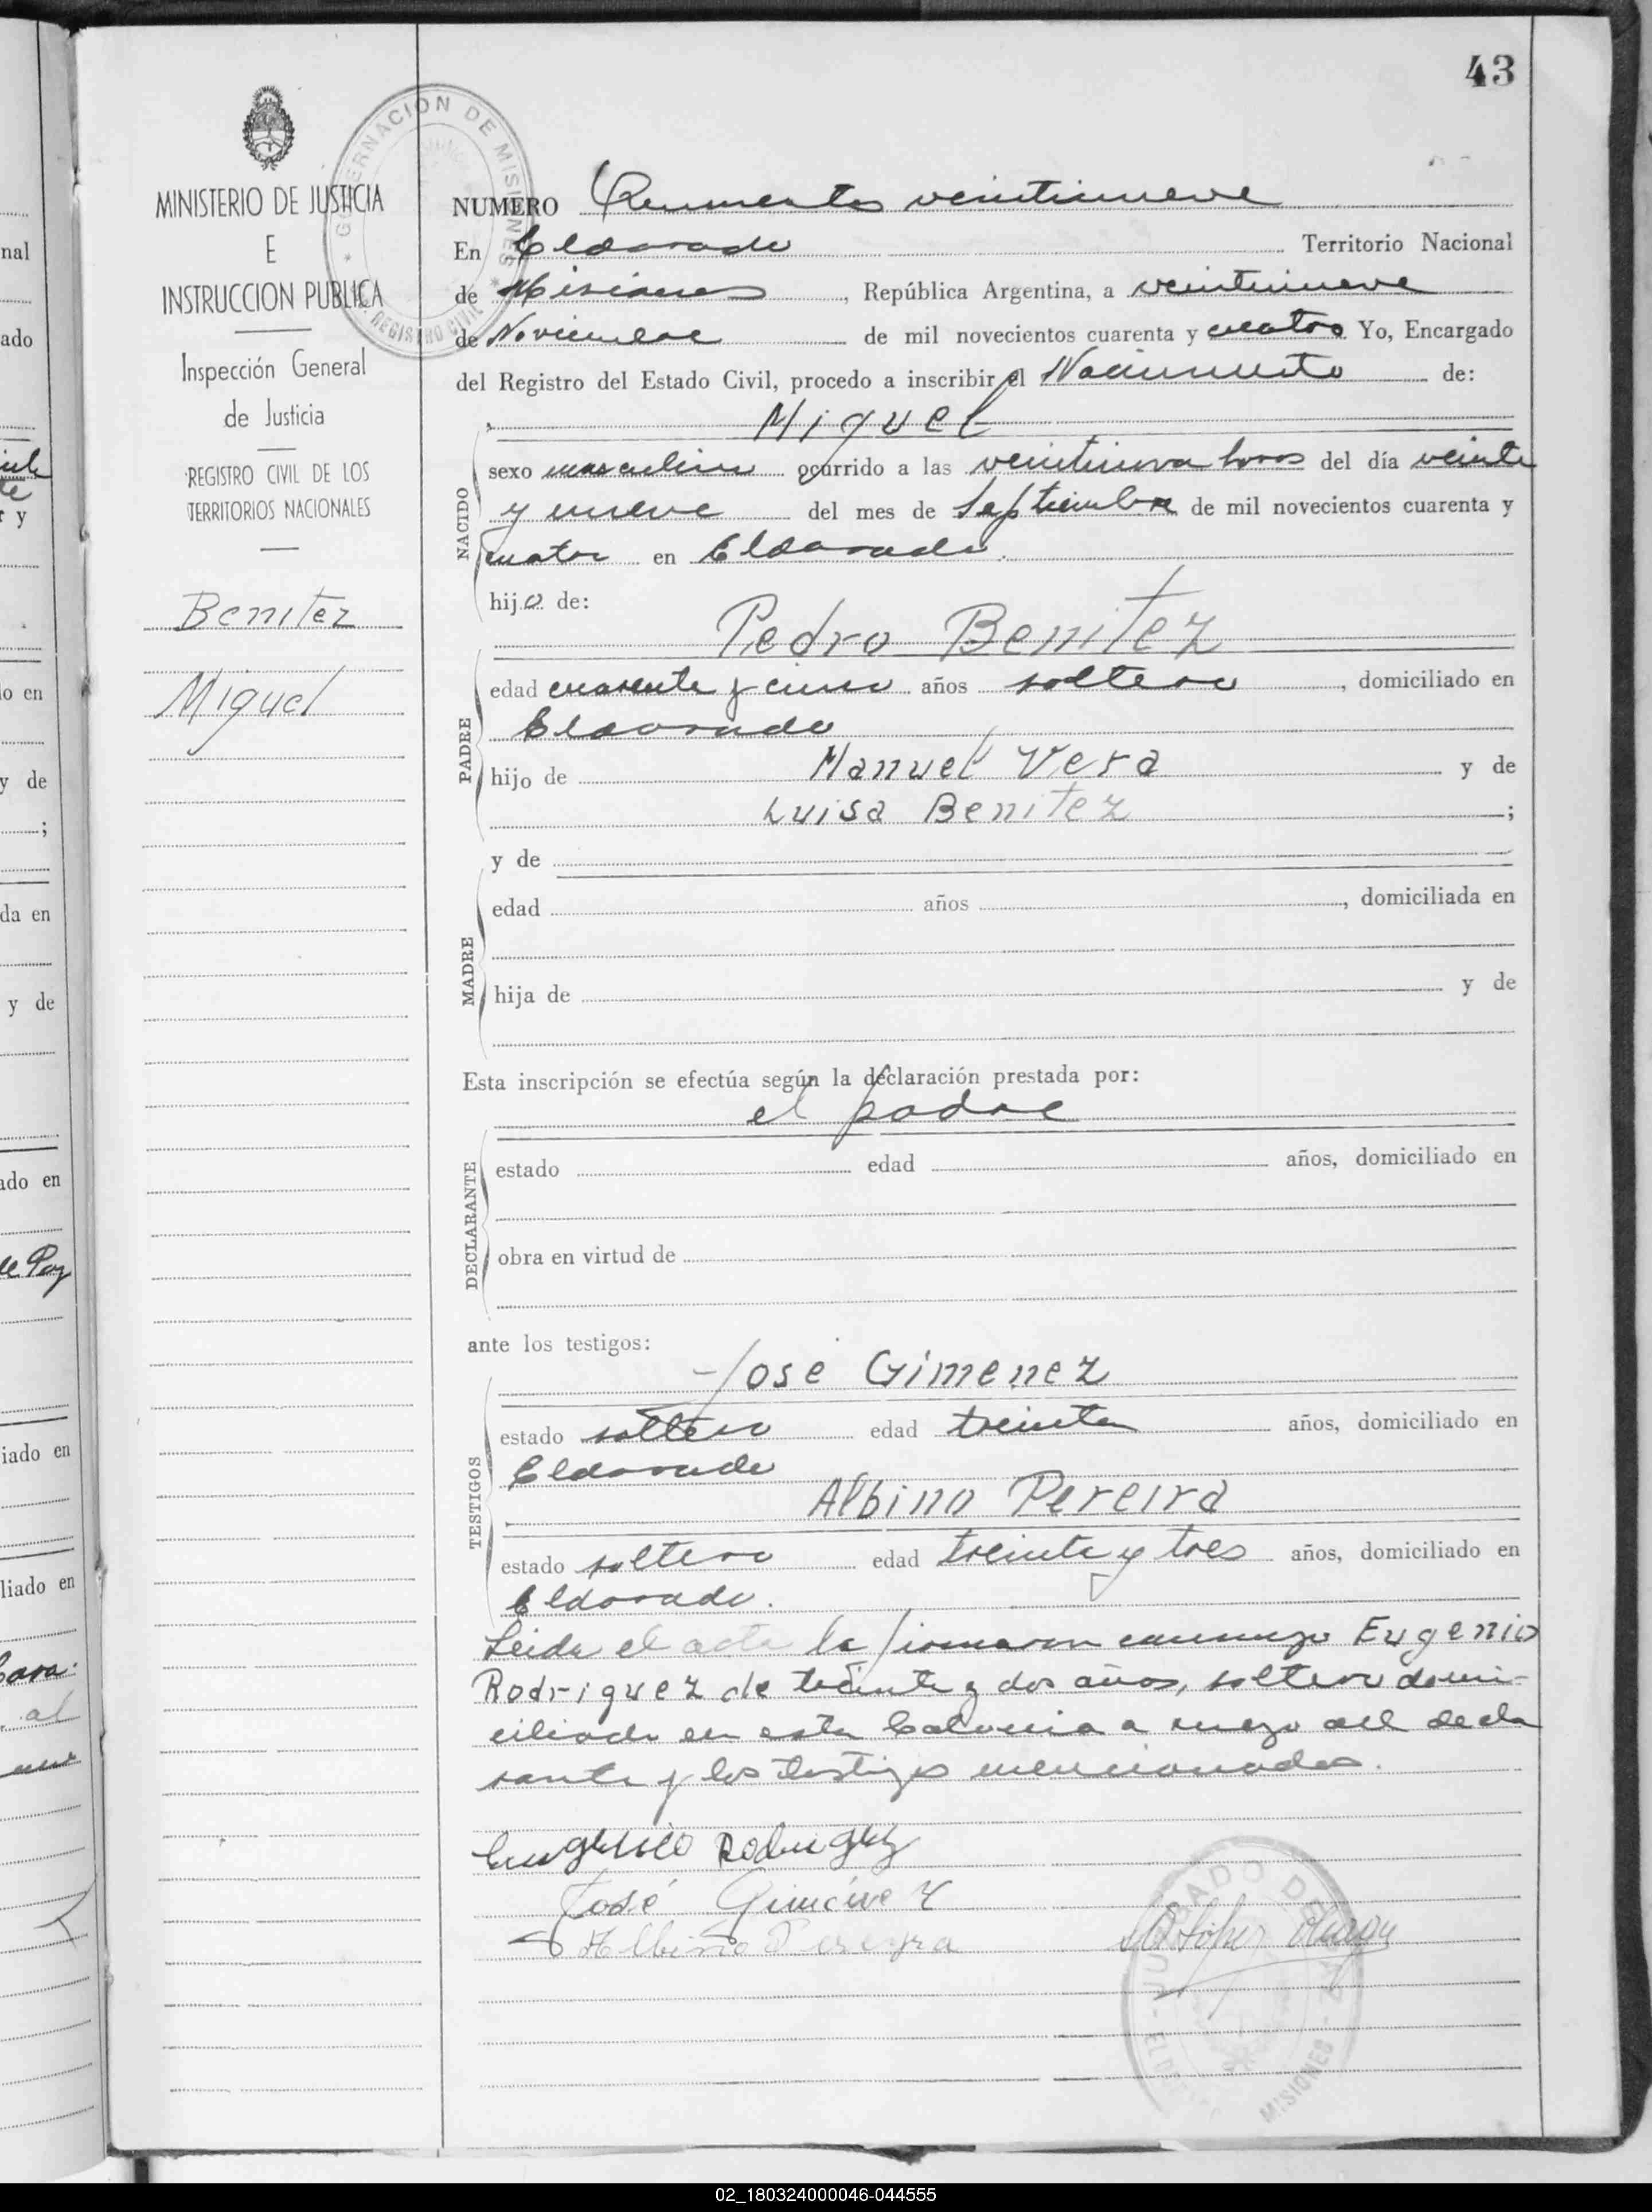 43
MINISTERIO DE JUSTICIA
E
INSTRUCCION PUBLICA
Inspección General
de Justicia
REGISTRO CIVIL DE LOS
TERRITORIOS NACIONALES
Benitez
Miguel
GOBERNACION DE MISIONES
REGISTRO CIVIL
NUMERO veintinueve
En Eldorado Territorio Nacional
de Misiones, República Argentina, a veintinueve
de Noviembre de mil novecientos cuarenta y cuatro Yo, Encargado
del Registro del Estado Civil, procedo a inscribir el Nacimiento de:
Miguel
NACIDO
sexo masculino ocurrido a las horas del día veinte
y nueve del mes de Septiembre de mil novecientos cuarenta y
cuatro en Eldorado.
hijo de:
Pedro Benitez
PADRE
edad cuarenta y cinco años soltero, domiciliado en
Eldorado
hijo de Manuel Vera y de
Luisa Benitez;
y de
MADRE
edad años, domiciliada en
hija de y de
Esta inscripción se efectúa según la declaración prestada por:
el padre
DECLARANTE
estado edad años, domiciliado en
obra en virtud de
ante los testigos:
José Gimenez
TESTIGOS
estado soltero edad treinta años, domiciliado en
Eldorado
Albino Pereira
estado soltero edad treinta y tres años, domiciliado en
Eldorado.
Leida el acta la firmaron conmigo Eugenio
Rodriguez de treinta y dos años, soltero domi-
ciliado en esta Colonia a ruego del decla
rante y los testigos mencionados.
Eugenio Rodriguez
José Giménez
Albino Pereyra
JUZGADO DE PAZ
MISIONES
nal
ado
r y
lo en
y de
;
da en
y de
ado en
iado en
liado en
al
02_180324000046-044555